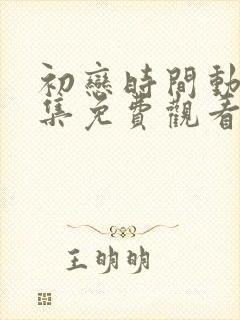 初戀時間動
集免費觀看
王明明